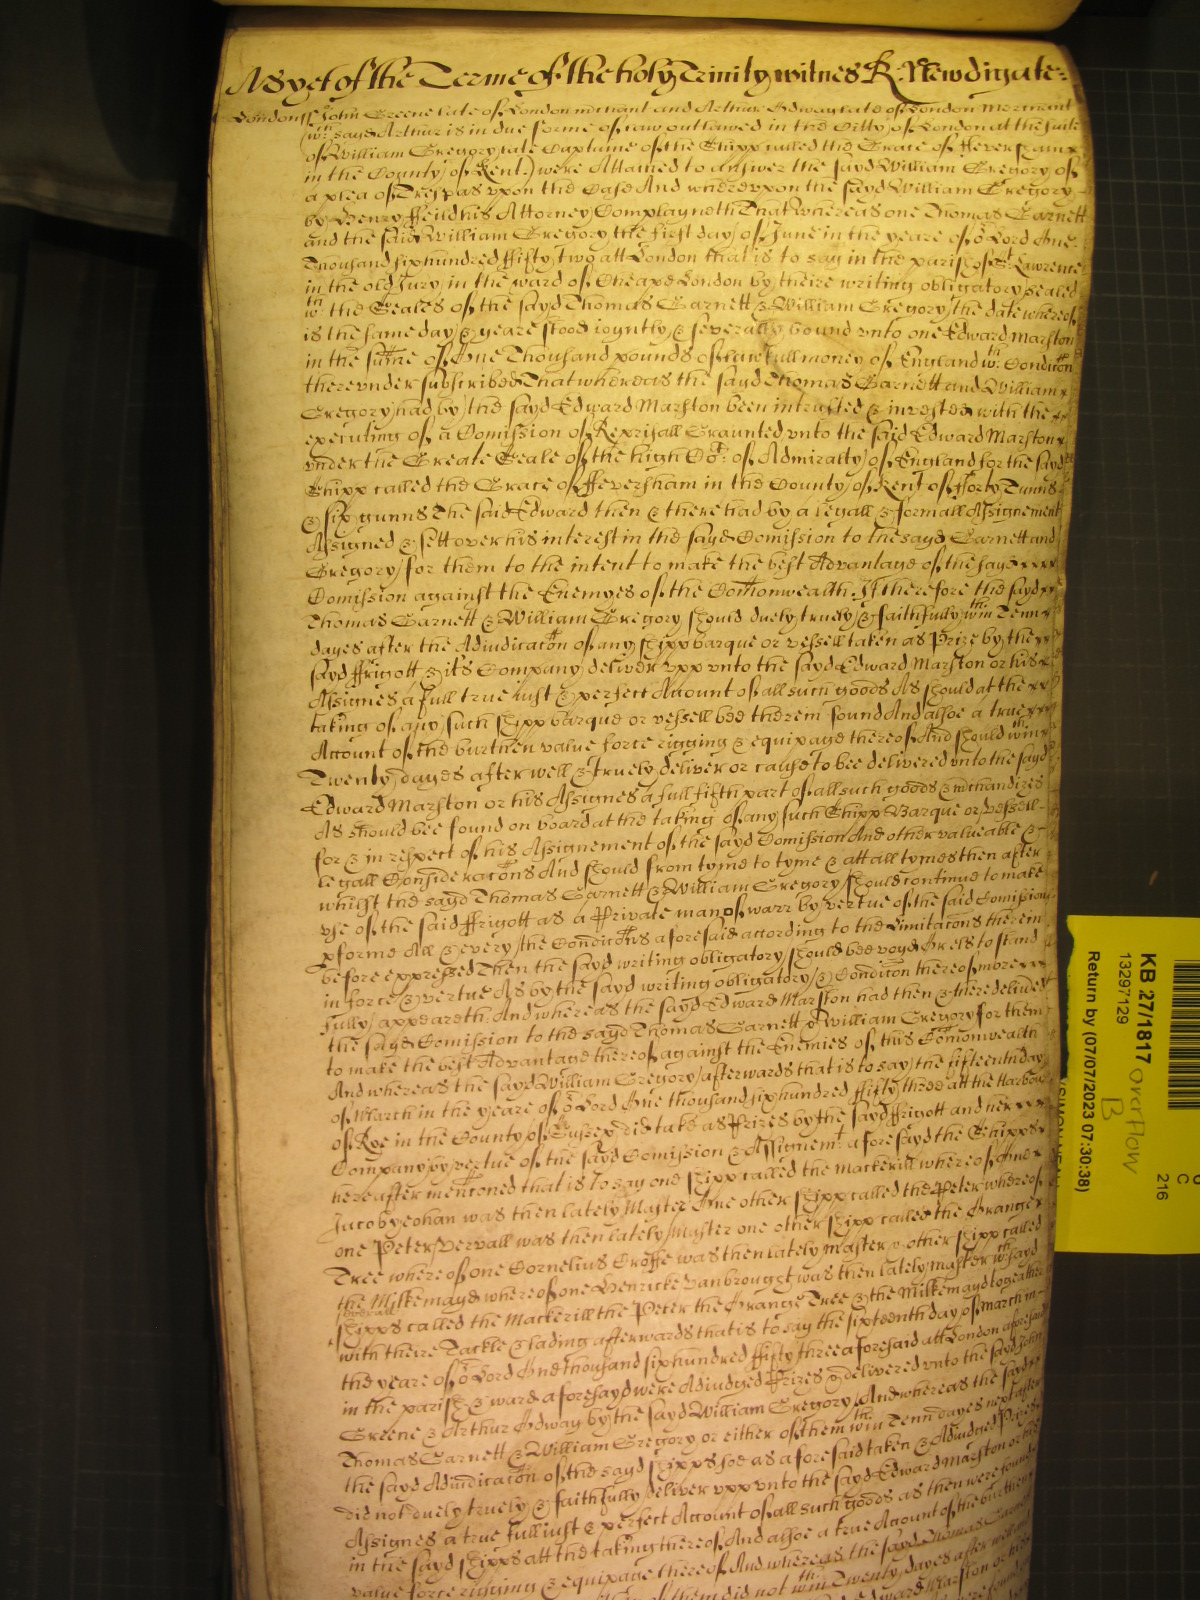 As yet of the Terme of the holy Trinity witnes R: Newdigate
London ss John Greene late of London mchant and Arthur Edway late of London Merchant
(wch sayd Arthur is in due forme of law outlawed in the Citty of London at the suite
of William Gregory late Captaine of the Shipp called the Grace of Feversham
in the County of Kent) were Attached to answer the sayd William Gregory of
a plea of Trespas vpon the Case And wherevpon the sayd William Gregory
by Henry ffeild his Attorney Complayneth That whereas one Thomas Garnett
and the said William Gregory the first day of June in the yeare of or Lord One
Thousand six hundred ffifty two att London that is to say in the parish of St Lawrence
in the old Jury in the ward of Cheape London by theire writing obligatory sealed
wth the Seales of the sayd Thomas Garnett & William Gregory the date whereof
is the same day & yeare stood ioyntly & severally bound vnto one Edward Marston
in the sume of One Thousand pounds of lawfull money of England wth Condicon
therevnder subscribed That whereas the sayd Thomas Garnett and William
Gregory had by the sayd Edward Marston been intrusted & invested with the
executing of a Comission of Reprisall Graunted vnto the said Edward Marston
vnder the Greate Seale of the high Cot: of Admiralty of England for the sayd
Shipp called the Grace of ffeversham in the County of Kent of fforty Tunns
& six gunns The said Edward then & there had by a legall & formall Assignement
Assigned & sett over his interest in the sayd Comission to the sayd Garnett and
Gregory for them to the intent to make the best Advantage of the sayd
Comission against the Enemyes of the Comonwealth If therefore the sayd
Thomas Garnett & William Gregory should duely truely & faithfully wthin Tenn
dayes after the Adiudicacon of any shipp barque or vessell taken as Prize by the
sayd ffrigott & its Company deliver vpp vnto the sayd Edward Marston or his
Assignes a full true iust & perfect Acount of all such goods As should at the
taking of any such shipp barque or vessell bee therein found And alsoe a true
Account of the burthen value force rigging & equipage thereof And should wthin
Twenty dayes after well & truely deliver or cause to bee delivered vnto the sayd
Edward Marston or his Assignes a full fifth part of all such goods & mchandizes
As should bee found on board at the taking of any such Shipp Barque or vessell
for & in respect of his Assignement of the sayd Comission And other valueable &
legall Consideracons And should from tyme to tyme & att all tymes then after
whilst the sayd Thomas Garnett & William Gregory should continue to make
vse of the said ffrigott as a Private man of warr by vertue of the said Comission
pforme All & every the Condicons aforesaid according to the Limitacons therein
before expressed Then the sayd writing obligatory should bee voyd Or els to stand
in force & vertue As by the sayd writing obligatory & Condicon thereof more
fully appeareth And whereas the sayd Edward Marston had then & there delivered
the sayd Comission to the sayd Thomas Garnett & William Gregory for them
to make the best Advantage thereof against the Enemies of this Comonwealth
And whereas the sayd William Gregory afterwards that is to say the fifteenth day
of March in the yeare of or Lord One thousand six hundred ffifty three att the Harbour
of Rye in the County of Sussex did take as Prizes by the sayd ffrigott and her
Company by vertue of the sayd Comission & Assignemt aforesayd the Shipps
hereafter menconed that is to say one shipp called the Mackerill whereof One
Jacob yeohan was then lately Master One other shipp called the Peter whereof
one Peter Vervall was then lately Master one other shipp called the Orange
Tree whereof one Cornelius Croffe was then lately master & other shipp called
the Milkemayd whereof one Henricke Vanbrought was then lately master wch sayd
severall
shipps called the Mackerill the Peter the Orange Tree & the Milkemayd togeather
with theire Tackle & lading afterwards that is to say the sixteenth day of March in
the yeare of or Lord One thousand six hundred ffifty three aforesaid att London aforesaid
in the parish & ward aforesayd were Adiudged Prizes & delivered vnto the sayd John
Greene & Arthur Edway by the sayd William Gregory And whereas the sayd
Thomas Garnett & William Gregory or either of them wthin Tenn dayes next after
the sayd Adiudicacon of the sayd shipps soe as aforesaid taken & Adiudged Prizes
did not duely truely & faithfully deliver vpp vnto the sayd Edward Marston or his
Assignes a true full iust & perfect Account of all such goods as then were found
in the sayd shipps att the taking thereof And alsoe a true Account of the burthen
value force rigging & equipage thereof And whereas the sayd Thomas Garnett
of them did not wthin Twenty dayes after well and
Edward Marston or his
KB 27/1817
13297129
Return by (07/07/2023 07:30:38)
overflow
B
C
216